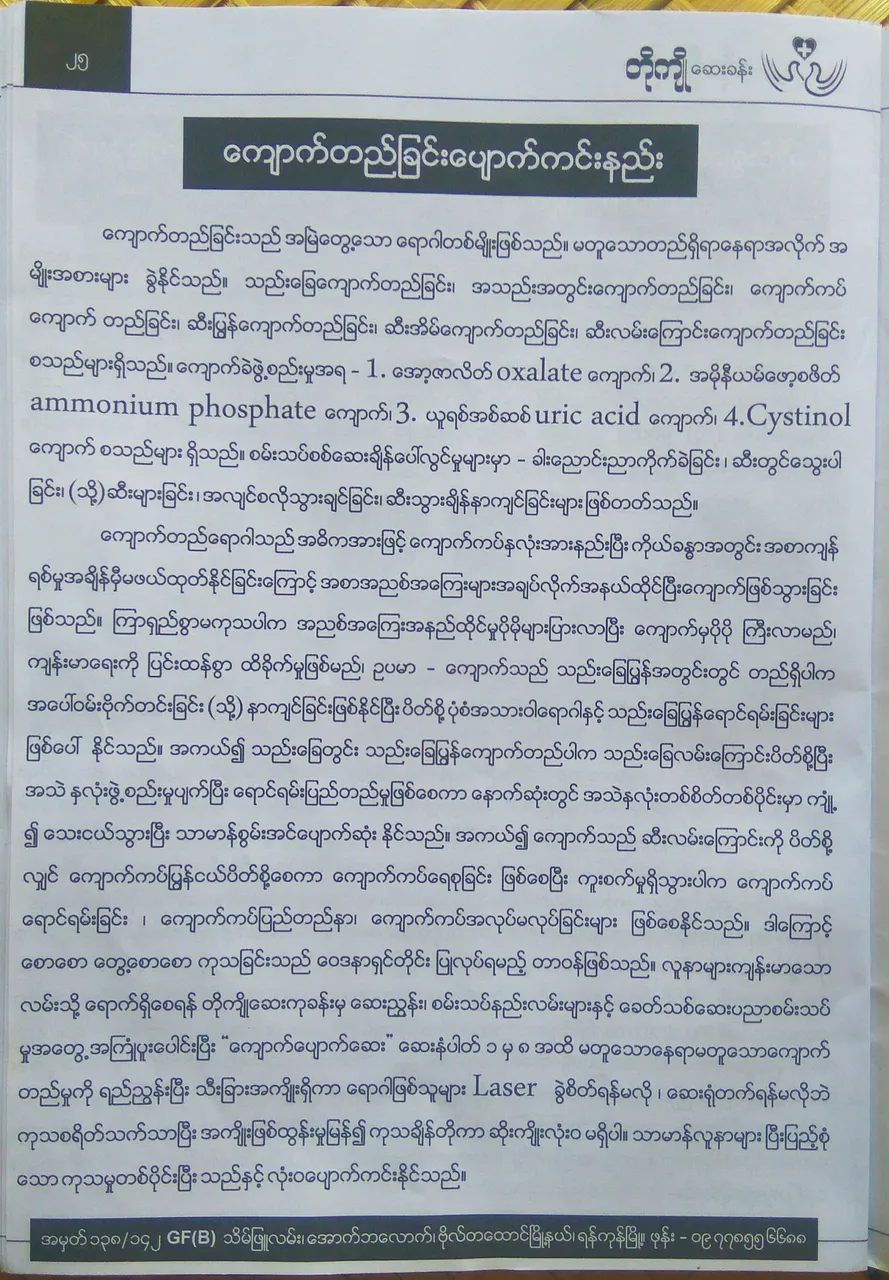 ၂၅
တိုကျို ဆေးခန်း
ကျောက်တည်ခြင်းပျောက်ကင်းနည်း
ကျောက်တည်ခြင်းသည် အမြဲတွေ့သော ရောဂါတစ်မျိုးဖြစ်သည်။ မတူသောတည်ရှိရာနေရာအလိုက် အ
မျိုးအစားများ ခွဲနိုင်သည်။ သည်းခြေကျောက်တည်ခြင်း၊ အသည်းအတွင်းကျောက်တည်ခြင်း၊ ကျောက်ကပ်
ကျောက် တည်ခြင်း၊ ဆီးပြွန်ကျောက်တည်ခြင်း၊ ဆီးအိမ်ကျောက်တည်ခြင်း၊ ဆီးလမ်းကြောင်းကျောက်တည်ခြင်း
စသည်များရှိသည်။ ကျောက်ခဲဖွဲ့စည်းမှုအရ - 1. အော့ဇာလိတ် oxalate ကျောက်၊ 2. အမိုနီယမ်ဖော့စဖိတ်
ammonium phosphate ကျောက်၊ 3. ယူရစ်အစ်ဆစ် uric acid ကျောက်၊ 4.Cystinol
ကျောက် စသည်များ ရှိသည်။ စမ်းသပ်စစ်ဆေးချိန်ပေါ်လွင်မှုများမှာ - ခါးညောင်းညာကိုက်ခဲခြင်း ၊ ဆီးတွင်သွေးပါ
ခြင်း၊ (သို့) ဆီးများခြင်း ၊ အလျင်စလိုသွားချင်ခြင်း၊ ဆီးသွားချိန်နာကျင်ခြင်းများ ဖြစ်တတ်သည်။
ကျောက်တည်ရောဂါသည် အဓိကအားဖြင့် ကျောက်ကပ်နှလုံးအားနည်းပြီး ကိုယ်ခန္ဓာအတွင်း အစာကျန်
ရစ်မှုအချိန်မှီမဖယ်ထုတ်နိုင်ခြင်းကြောင့် အစာအညစ်အကြေးများအချပ်လိုက်အနယ်ထိုင်ပြီးကျောက်ဖြစ်သွားခြင်း
ဖြစ်သည်။ ကြာရှည်စွာမကုသပါက အညစ်အကြေးအနည်ထိုင်မှုပိုမိုများပြားလာပြီး ကျောက်မှပိုပို ကြီးလာမည်၊
ကျန်းမာရေးကို ပြင်းထန်စွာ ထိခိုက်မှုဖြစ်မည်၊ ဥပမာ - ကျောက်သည် သည်းခြေပြွန်အတွင်းတွင် တည်ရှိပါက
အပေါ်ဝမ်းဗိုက်တင်းခြင်း (သို့) နာကျင်ခြင်းဖြစ်နိုင်ပြီး ပိတ်စို့ ပုံစံအသားဝါရောဂါနှင့် သည်းခြေပြွန်ရောင်ရမ်းခြင်းများ
ဖြစ်ပေါ် နိုင်သည်။ အကယ်၍ သည်းခြေတွင်း သည်းခြေပြွန်ကျောက်တည်ပါက သည်းခြေလမ်းကြောင်းပိတ်စို့ပြီး
အသဲ နှလုံးဖွဲ့စည်းမှုပျက်ပြီး ရောင်ရမ်းပြည်တည်မှုဖြစ်စေကာ နောက်ဆုံးတွင် အသဲနှလုံးတစ်စိတ်တစ်ပိုင်းမှာ ကျုံ့
၍ သေးငယ်သွားပြီး သာမာန်စွမ်းအင်ပျောက်ဆုံး နိုင်သည်။ အကယ်၍ ကျောက်သည် ဆီးလမ်းကြောင်းကို ပိတ်စို့
လျှင် ကျောက်ကပ်ပြွန်ငယ်ပိတ်စို့စေကာ ကျောက်ကပ်ရေစုခြင်း ဖြစ်စေပြီး ကူးစက်မှုရှိသွားပါက ကျောက်ကပ်
ရောင်ရမ်းခြင်း ၊ ကျောက်ကပ်ပြည်တည်နာ၊ ကျောက်ကပ်အလုပ်မလုပ်ခြင်းများ ဖြစ်စေနိုင်သည်။ ဒါကြောင့်
စောစော တွေ့စောစော ကုသခြင်းသည် ဝေဒနာရှင်တိုင်း ပြုလုပ်ရမည့် တာဝန်ဖြစ်သည်။ လူနာများကျန်းမာသော
လမ်းသို့ ရောက်ရှိစေရန် တိုကျိုဆေးကုခန်းမှ ဆေးညွှန်း၊ စမ်းသပ်နည်းလမ်းများနှင့် ခေတ်သစ်ဆေးပညာစမ်းသပ်
မှုအတွေ့ အကြုံပူးပေါင်းပြီး “ကျောက်ပျောက်ဆေး” ဆေးနံပါတ် ၁ မှ ၈ အထိ မတူသောနေရာမတူသောကျောက်
တည်မှုကို ရည်ညွှန်းပြီး သီးခြားအကျိုးရှိကာ ရောဂါဖြစ်သူများ Laser ခွဲစိတ်ရန်မလို ၊ ဆေးရုံတက်ရန်မလိုဘဲ
ကုသစရိတ်သက်သာပြီး အကျိုးဖြစ်ထွန်းမှုမြန်၍ ကုသချိန်တိုကာ ဆိုးကျိုးလုံးဝ မရှိပါ။ သာမာန်လူနာများ ပြီးပြည့်စုံ
သော ကုသမှုတစ်ပိုင်းပြီး သည်နှင့် လုံးဝပျောက်ကင်းနိုင်သည်။
အမှတ် ၁၃၈/၁၄၂ GF(B) သိမ်ဖြူလမ်း၊ အောက်ဘလောက်၊ ဗိုလ်တထောင်မြို့နယ်၊ ရန်ကုန်မြို့။ ဖုန်း - ၀၉ ၇၇၈၅၅၆၆၈၈